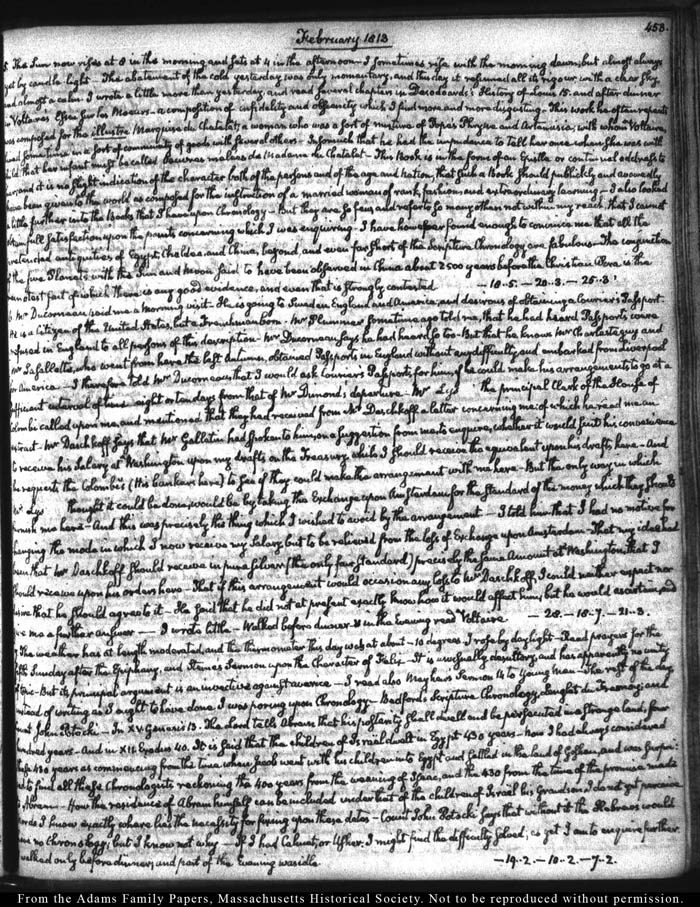 458.
February 1813
5. The Sun now rises at 8 in the morning and sets at 4 in the afternoon. I sometimes rise with the morning dawn; but almost always
yet by candle-light. The abatement of the cold yesterday was only momentary, and this day it resumed all its rigour, with a clear sky
and almost a calm. I wrote a little more than yesterday, and read several chapters in Desodoards's History of Louis 15. and after dinner
Voltaire's Essai sur les Moeurs a composition of infidelity and obscenity which I find more and more disgusting. This work he often repeats
was composed for the illustre Marquise du Chatelet; a woman who was a sort of mixture of Pope's Phryne and Artemisia; with whom Voltaire
lived sometime in a sort of community of goods with several others. Insomuch that he had the impudence to tell her once when she was with
child that her infant must be called
This Book is in the form of an Epistle or continual address to
her; and it is no slight indication of the character both of the persons and of the age and nation, that such a Book should publickly and avowedly
have been given to the world as composed for the instruction of a married woman of rank, fashion and extraordinary learning. I also looked
a little further into the Books that I have upon Chronology. But they are so few, and refer to so many others not within my reach, that I cannot
obtain full satisfaction upon the points concerning which I was enquiring. I have however found enough to convince me that all the
pretended antiquities of Egypt, Chaldea and China, beyond, and even far short of the Scripture Chronology are fabulous. The conjunction
of the five Planets with the Sun and Moon said to have been observed in China about 2500 years before the Christian Aera, is the
remotest fact of which there is any good evidence, and even that is strongly contested — 10.5. — 20.3. — 25.3.
6. Mr Ducorneau paid me a morning visit. He is going to Sweden England and America; and desirous of obtaining a Courier's Passport.
He is a citizen of the United States, but a Frenchman born. Mr Plummer sometime ago told me, that he had heard Passports were
refused in England to all persons of this description. Mr Ducorneau says he had heard so too. But that he knows Mr
and
Mr who went from here the last Autumn, obtained Passports in England without any difficulty, and embarked from Liverpool
for America. I therefore told Mr Ducorneau that I would ask Courier's Passport for him, if he could make his arrangements to go at a
sufficient interval of time eight or ten days from that of Mr departure. Mr the principal Clerk of the House of
Colombi called upon me, and mentioned that they had received from Mr Daschkoff a letter concerning me; of which he read me an
extract. Mr Daschkoff says that Mr Gallatin had spoken to him, on a suggestion from me to enquire, whether it would suit his convenience
to receive his Salary at Washington upon my drafts on the Treasury, while I should receive the equivalent upon his drafts here. And
he requests the Colombi's (His Bankers here) to see if they could make the arrangement with me here. But the only way in which
Mr thought it could be done, would be by taking the Exchange upon Amsterdam for the Standard of the money which they should
furnish me here. And this was precisely the thing which I wished to avoid by the arrangement. I told him that I had no motive for
changing the mode in which I now receive my Salary, but to be relieved from the loss of Exchange upon Amsterdam. That my idea had
been that Mr Daschkoff should receive in pure silver (the only fair standard) precisely the same Amount at Washington, that I
should receive upon his orders here. That if this arrangement would occasion any loss to Mr Daschkoff, I could neither expect nor
desire that he should agree to it. He said that he did not at present exactly know how it would affect him, but he would ascertain, and
give me a further answer. — I wrote little. Walked before dinner & in the evening read Voltaire — 28. — 18.7. — 21.3.
7. The weather has at length moderated, and the thermometer this day was at about 10 degrees. I rose by daylight. Read prayers for the
fifth Sunday after the Epiphany, and Sterne's Sermon upon the Character of It is unusually desultory, and has apparently no unity
of topic. But its principal argument is an invective against avarice. I read also Mayhew's Sermon 4 to Young Men. The rest of the day
instead of writing as I ought to have done, I was poring upon Chronology. Bedford's Scripture Chronology, and
Count John Potocki. In XV Genesis 13. The Lord tells Abram that his posterity shall dwell and be persecuted in a strange land, four
hundred years. And in XII. Exodus 40. It is said that the children of Israel dwelt in Egypt 430 years. now I had always considered
these 430 years as commencing from the time when Jacob went with his children into Egypt and settled in the land of Goshen, and was
to find all these Chronologists reckoning the 400 years from the weaning of Isaac, and the 430 from the time of the promise made
to Abram. How the residence of Abram himself can be included under that of the children of Israel his Grandson, I do not yet perceive
nor do I know exactly where lies the necessity for fixing upon these dates. Count John Potocki says that without it the Hebrews would
have no Chronology; but I know not why. If I had Calmet, or Usher, I might find the difficulty solved, as yet I am to enquire further.
Walked only before dinner; and part of the Evening was idle — 19.2. — 10.2. — 7.2.
From the Adams Family Papers, Massachusetts Historical Society. Not to be reproduced without permission.